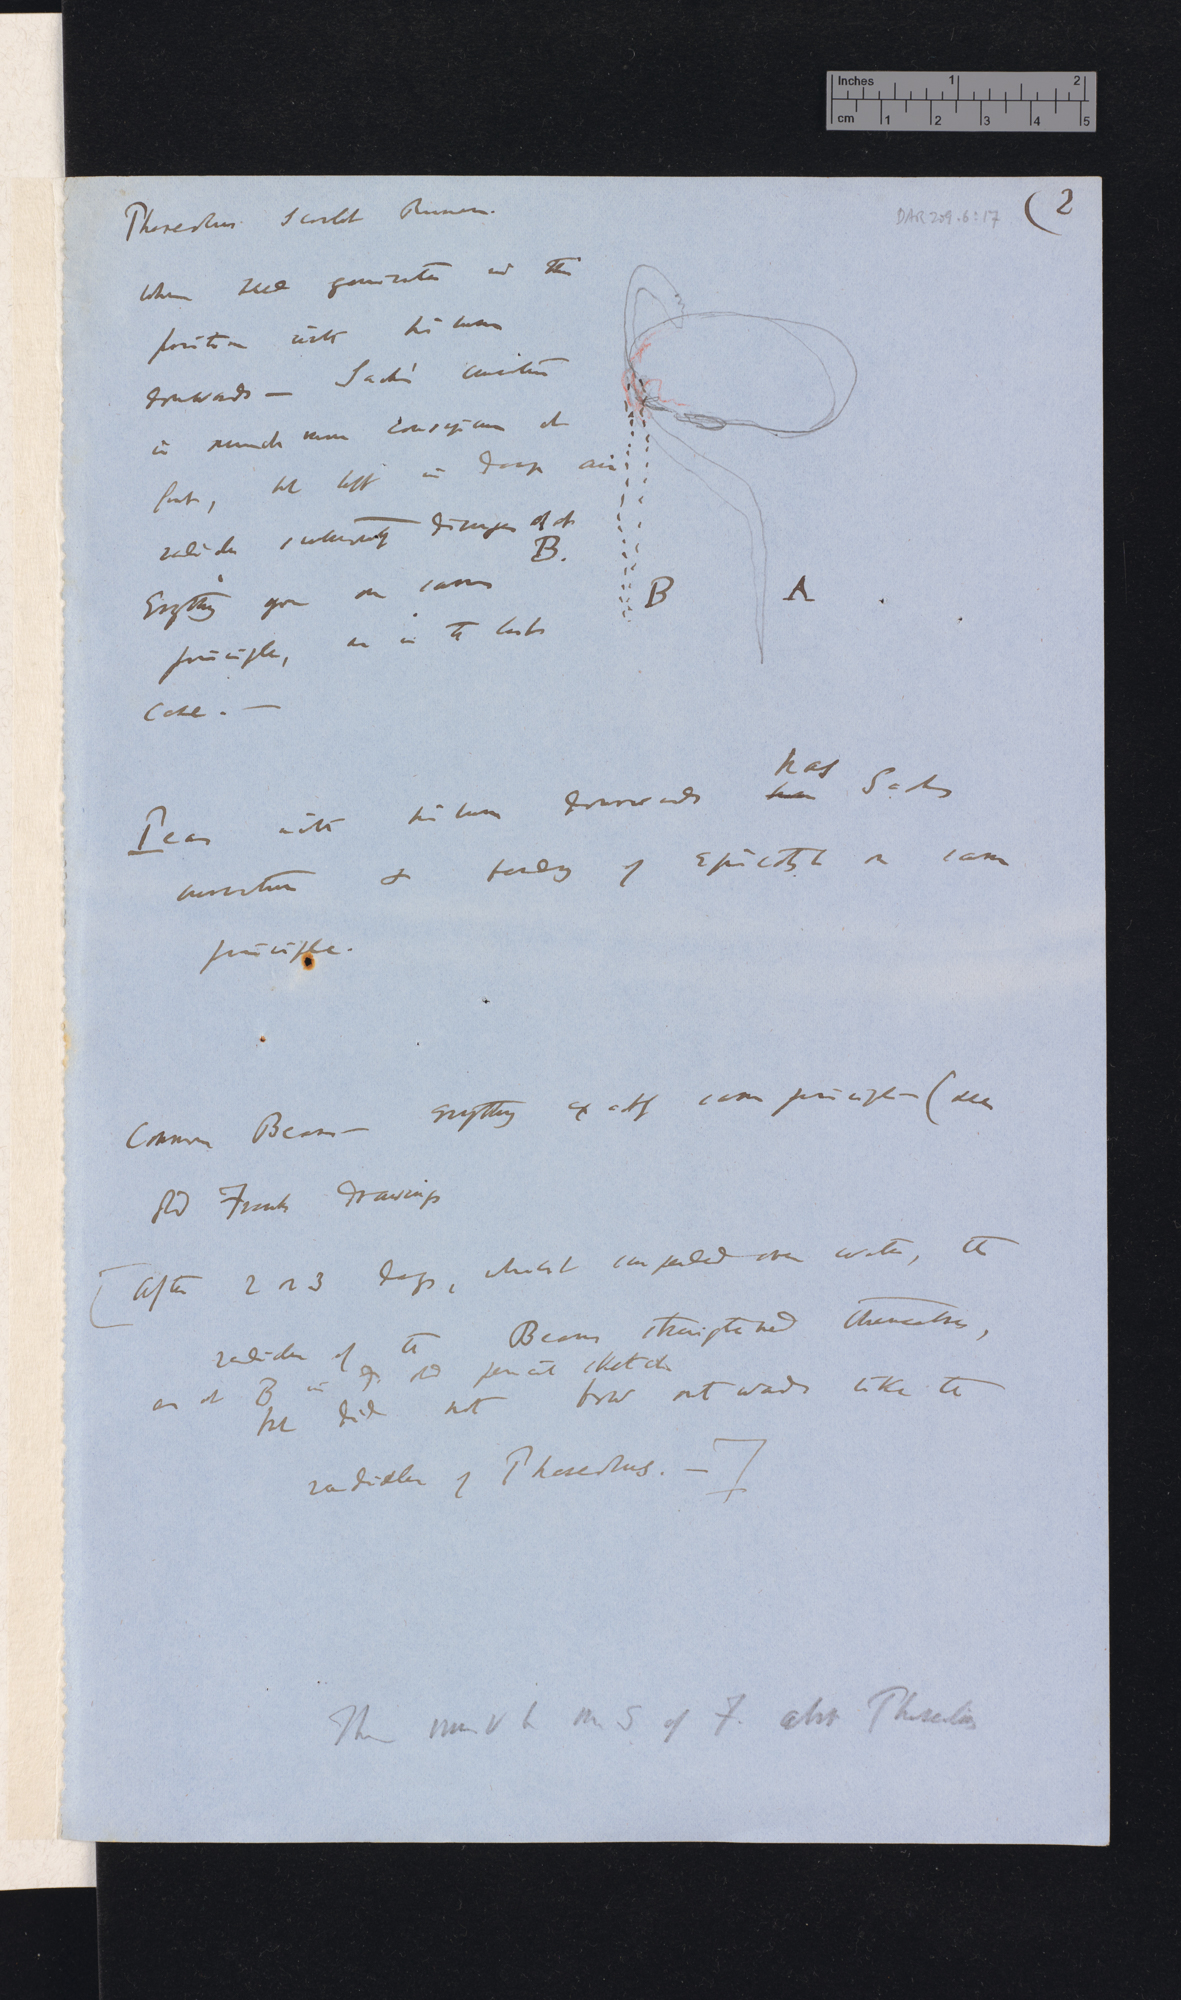 DAR 209.6:17
(2
Phaseolus Scarlet Runner.
When seed germinates in this
position with hilum
downwards — Sachs' curvature
is much more conspicuous at
first, but left in damp air
radicle subsequently
B.
Everything goes on same
principle, as in the last
case. —
B A
Peas with hilum downwards has Sachs
curvature & of epicotyl on same
principle.
Common Beans — Everything exactly same principle — (see
old Frank's drawings
[After 2 or 3 days, whilst suspended over water, the
radicles of the Beans straightened themselves,
as at B in old pencil sketch
but did not bow outwards like the
radicles of Phaseolus. —]
MS of F. about Phaseolus
Inches 1 2
cm 1 2 3 4 5